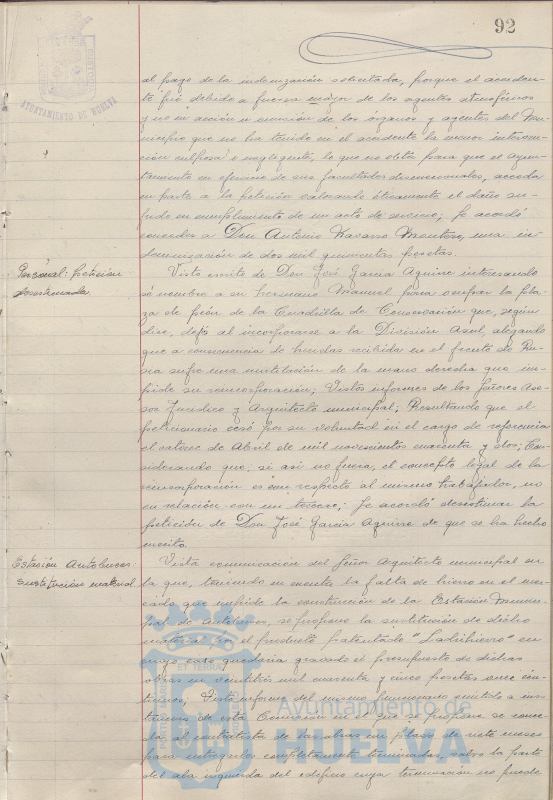 92
AYUNTAMIENTO DE HUELVA
al pago de la indemnización solicitada, porque el acciden-
te fué debido a fuerza mayor de los agentes atmosféricos
y no en acción u omisión de los órganos y agentes del Mu-
nicipio que no ha tenido en el accidente la menor interven-
ción culposa o negligente, lo que no obsta para que el Ayun-
tamiento en ejercicio de sus facultades discrecionales, acceda
en parte a la petición valorando éticamente el daño su-
frido en cumplimiento de un acto de servicio; Se acordó
conceder a Don Antonio Navarro Montoro, una in-
demnización de dos mil quinientas pesetas.
Personal: petición
desestimada.
Visto escrito de Don José García Aguirre interesando
se nombre a su hermano Manuel para ocupar la pla-
za de peón de la Cuadrilla de Conservación que, según
dice, dejó al incorporarse a la División Azul, alegando
que a consecuencia de heridas recibidas en el frente de Ru-
sia sufre una mutilación de la mano derecha que im-
pide su reincorporación; Vistos informes de los Señores Ase-
sor Jurídico y Arquitecto municipal; Resultando que el
peticionario cesó por su voluntad en el cargo de referencia
el catorce de Abril de mil novecientos cuarenta y dos; Con-
siderando que, si así no fuera, el concepto legal de la
reincorporación es con respecto al mismo trabajador, no
en relación con un tercero; Se acordó desestimar la
petición de Don José García Aguirre de que se ha hecho
mérito.
Estación Autobuses:
sustitución material.
Vista comunicación del Señor Arquitecto municipal en
la que, teniendo en cuenta la falta de hierro en el mer-
cado que impide la construcción de la Estación Munici-
pal de Autobuses, se propone la sustitución de dicho
material por el producto patentado "Ladrihierro" en
cuyo caso quedaría gravado el presupuesto de dichas
obras en veintitrés mil cuarenta y cinco pesetas once cén-
timos; Visto informe del mismo funcionario emitido a ins-
tancias de esta Comisión en el que se propone se conce-
da al contratista de las obras un plazo de siete meses
para entregarlas completamente terminadas, salvo la parte
del ala izquierda del edificio cuya terminación no puede
Ayuntamiento de
HUELVA